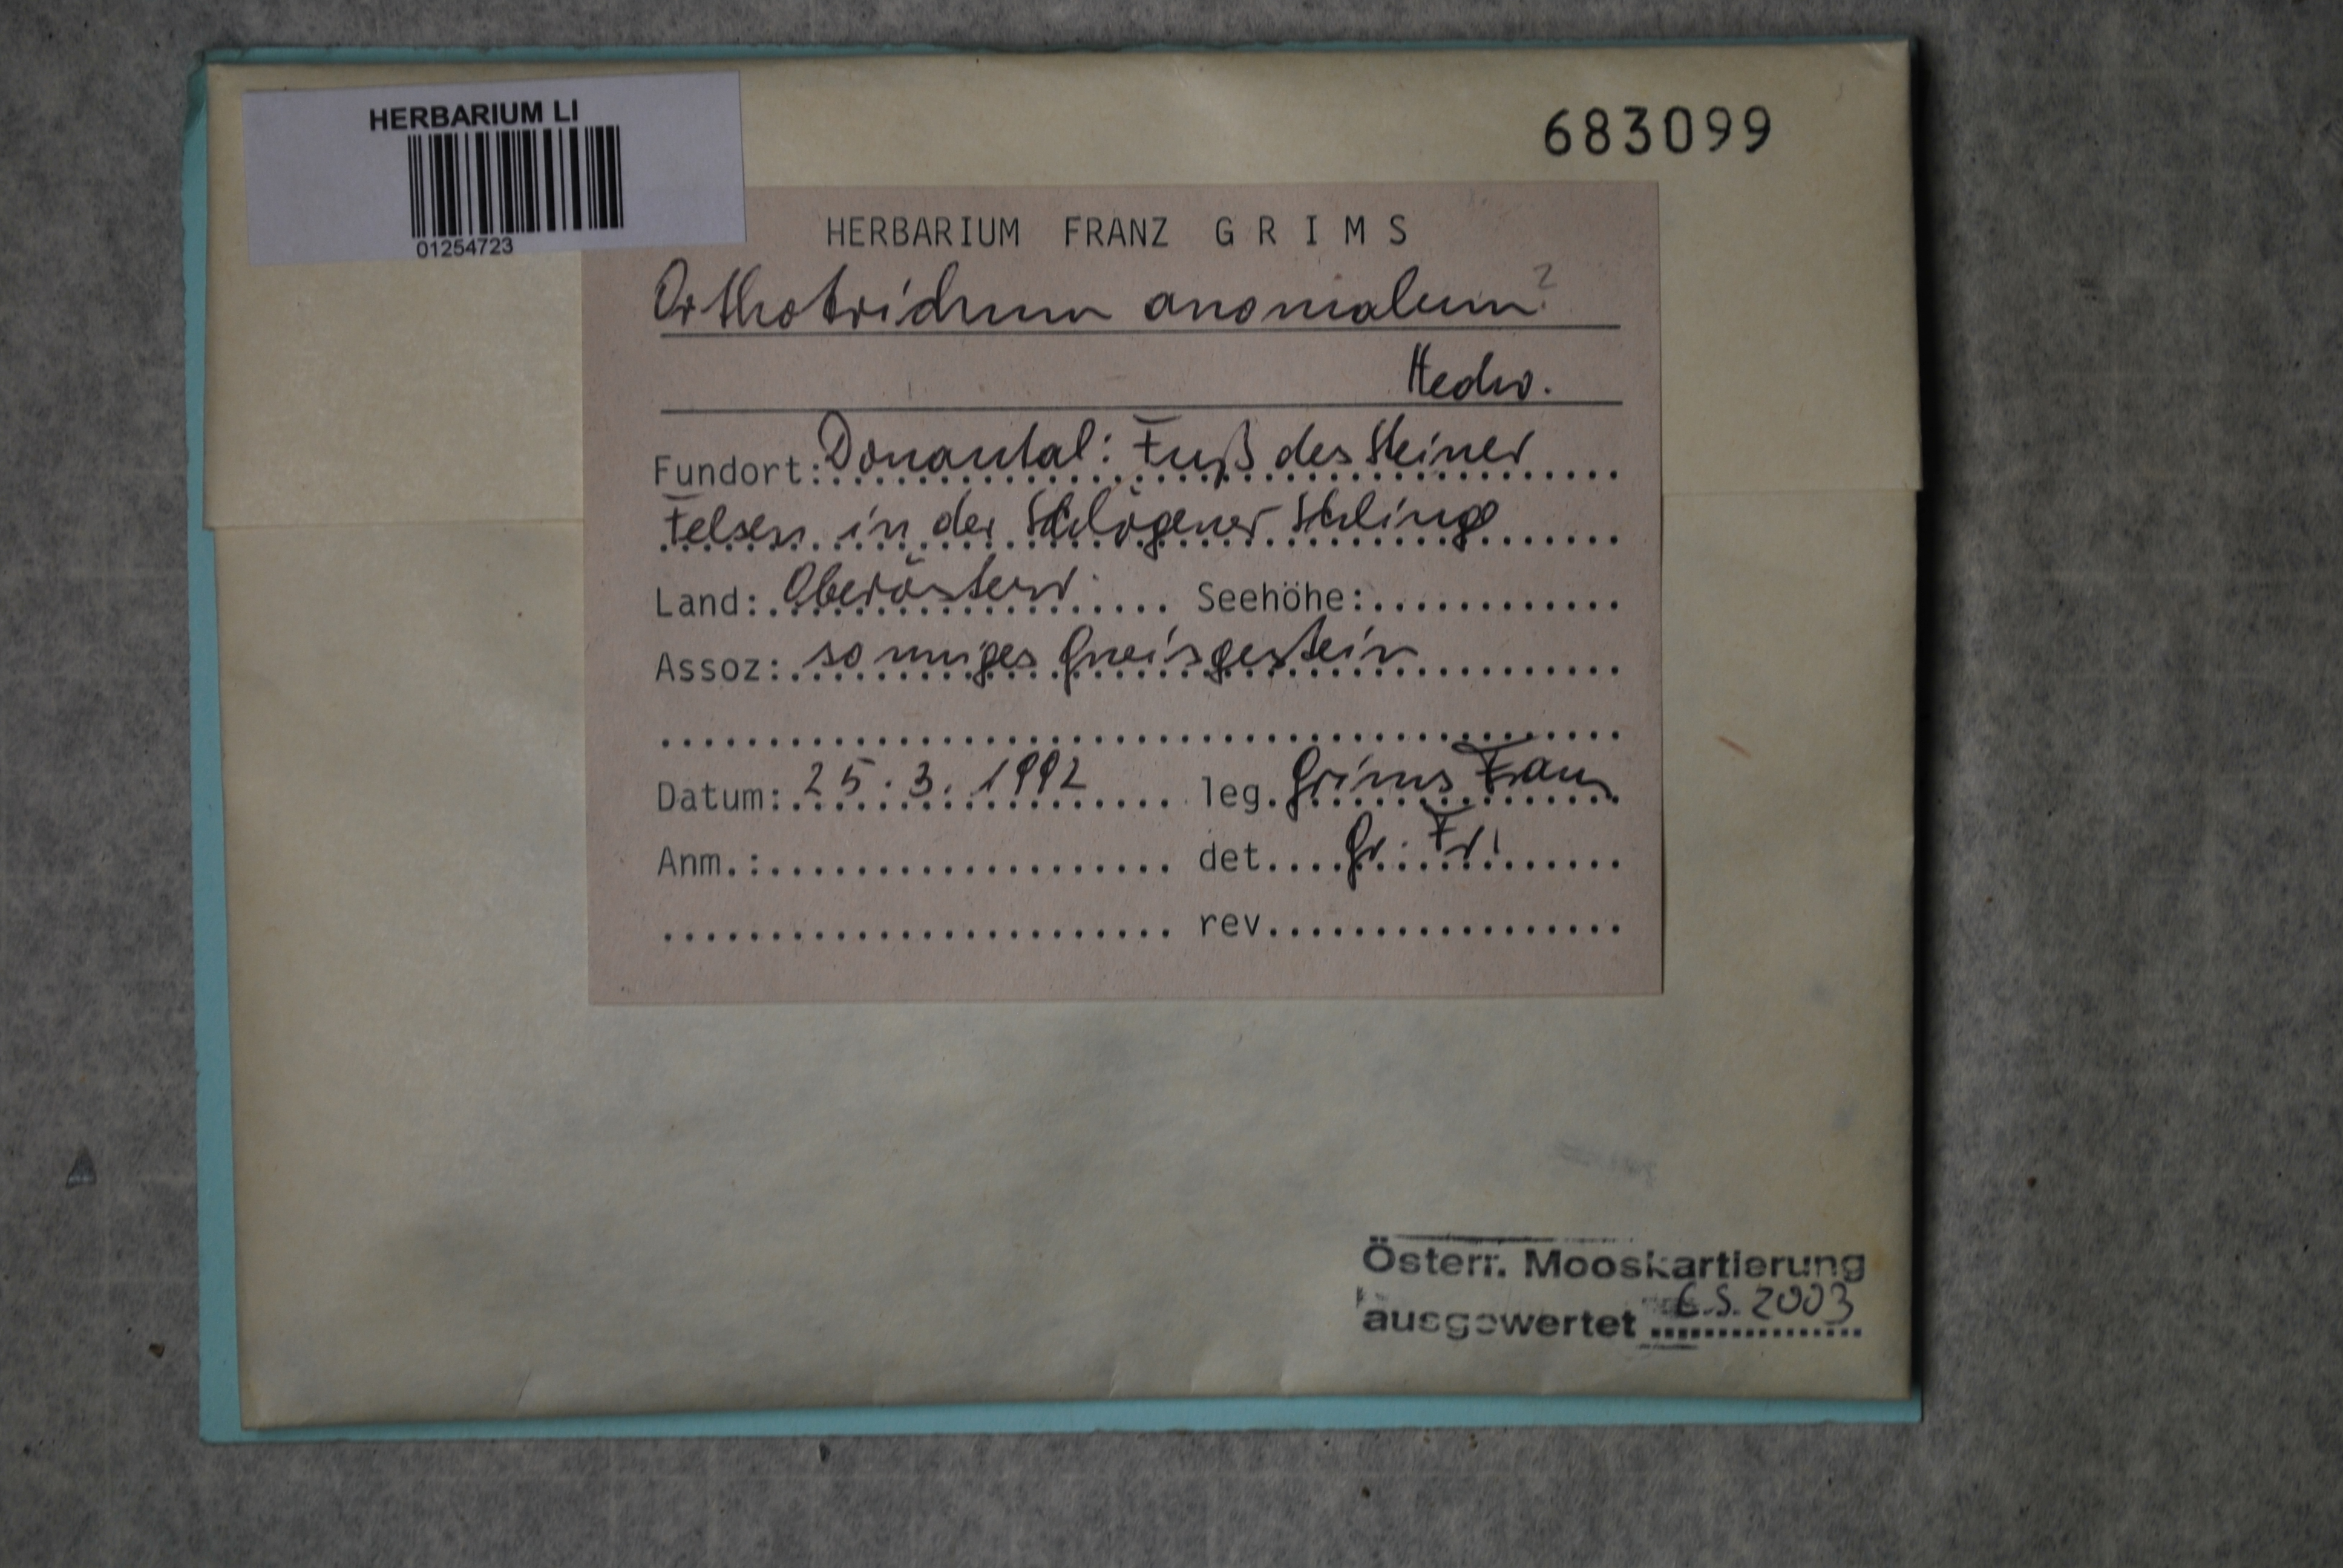 HERBARIUM LI
01254723
683099
HERBARIUM FRANZ GRIMS
Orthotrichum anomalum?
Hedw.
Fundort: Donautal: Fuß des Steiner
Felsen in der Schlögener Schlinge
Land: Oberösterr. Seehöhe:
Assoz: sonniges Gneisgestein
Datum: 25.3.1992 leg. Grims Franz
Anm.: det. Gr. Fr.
rev.
Österr. Mooskartierung
ausgewertet 2003